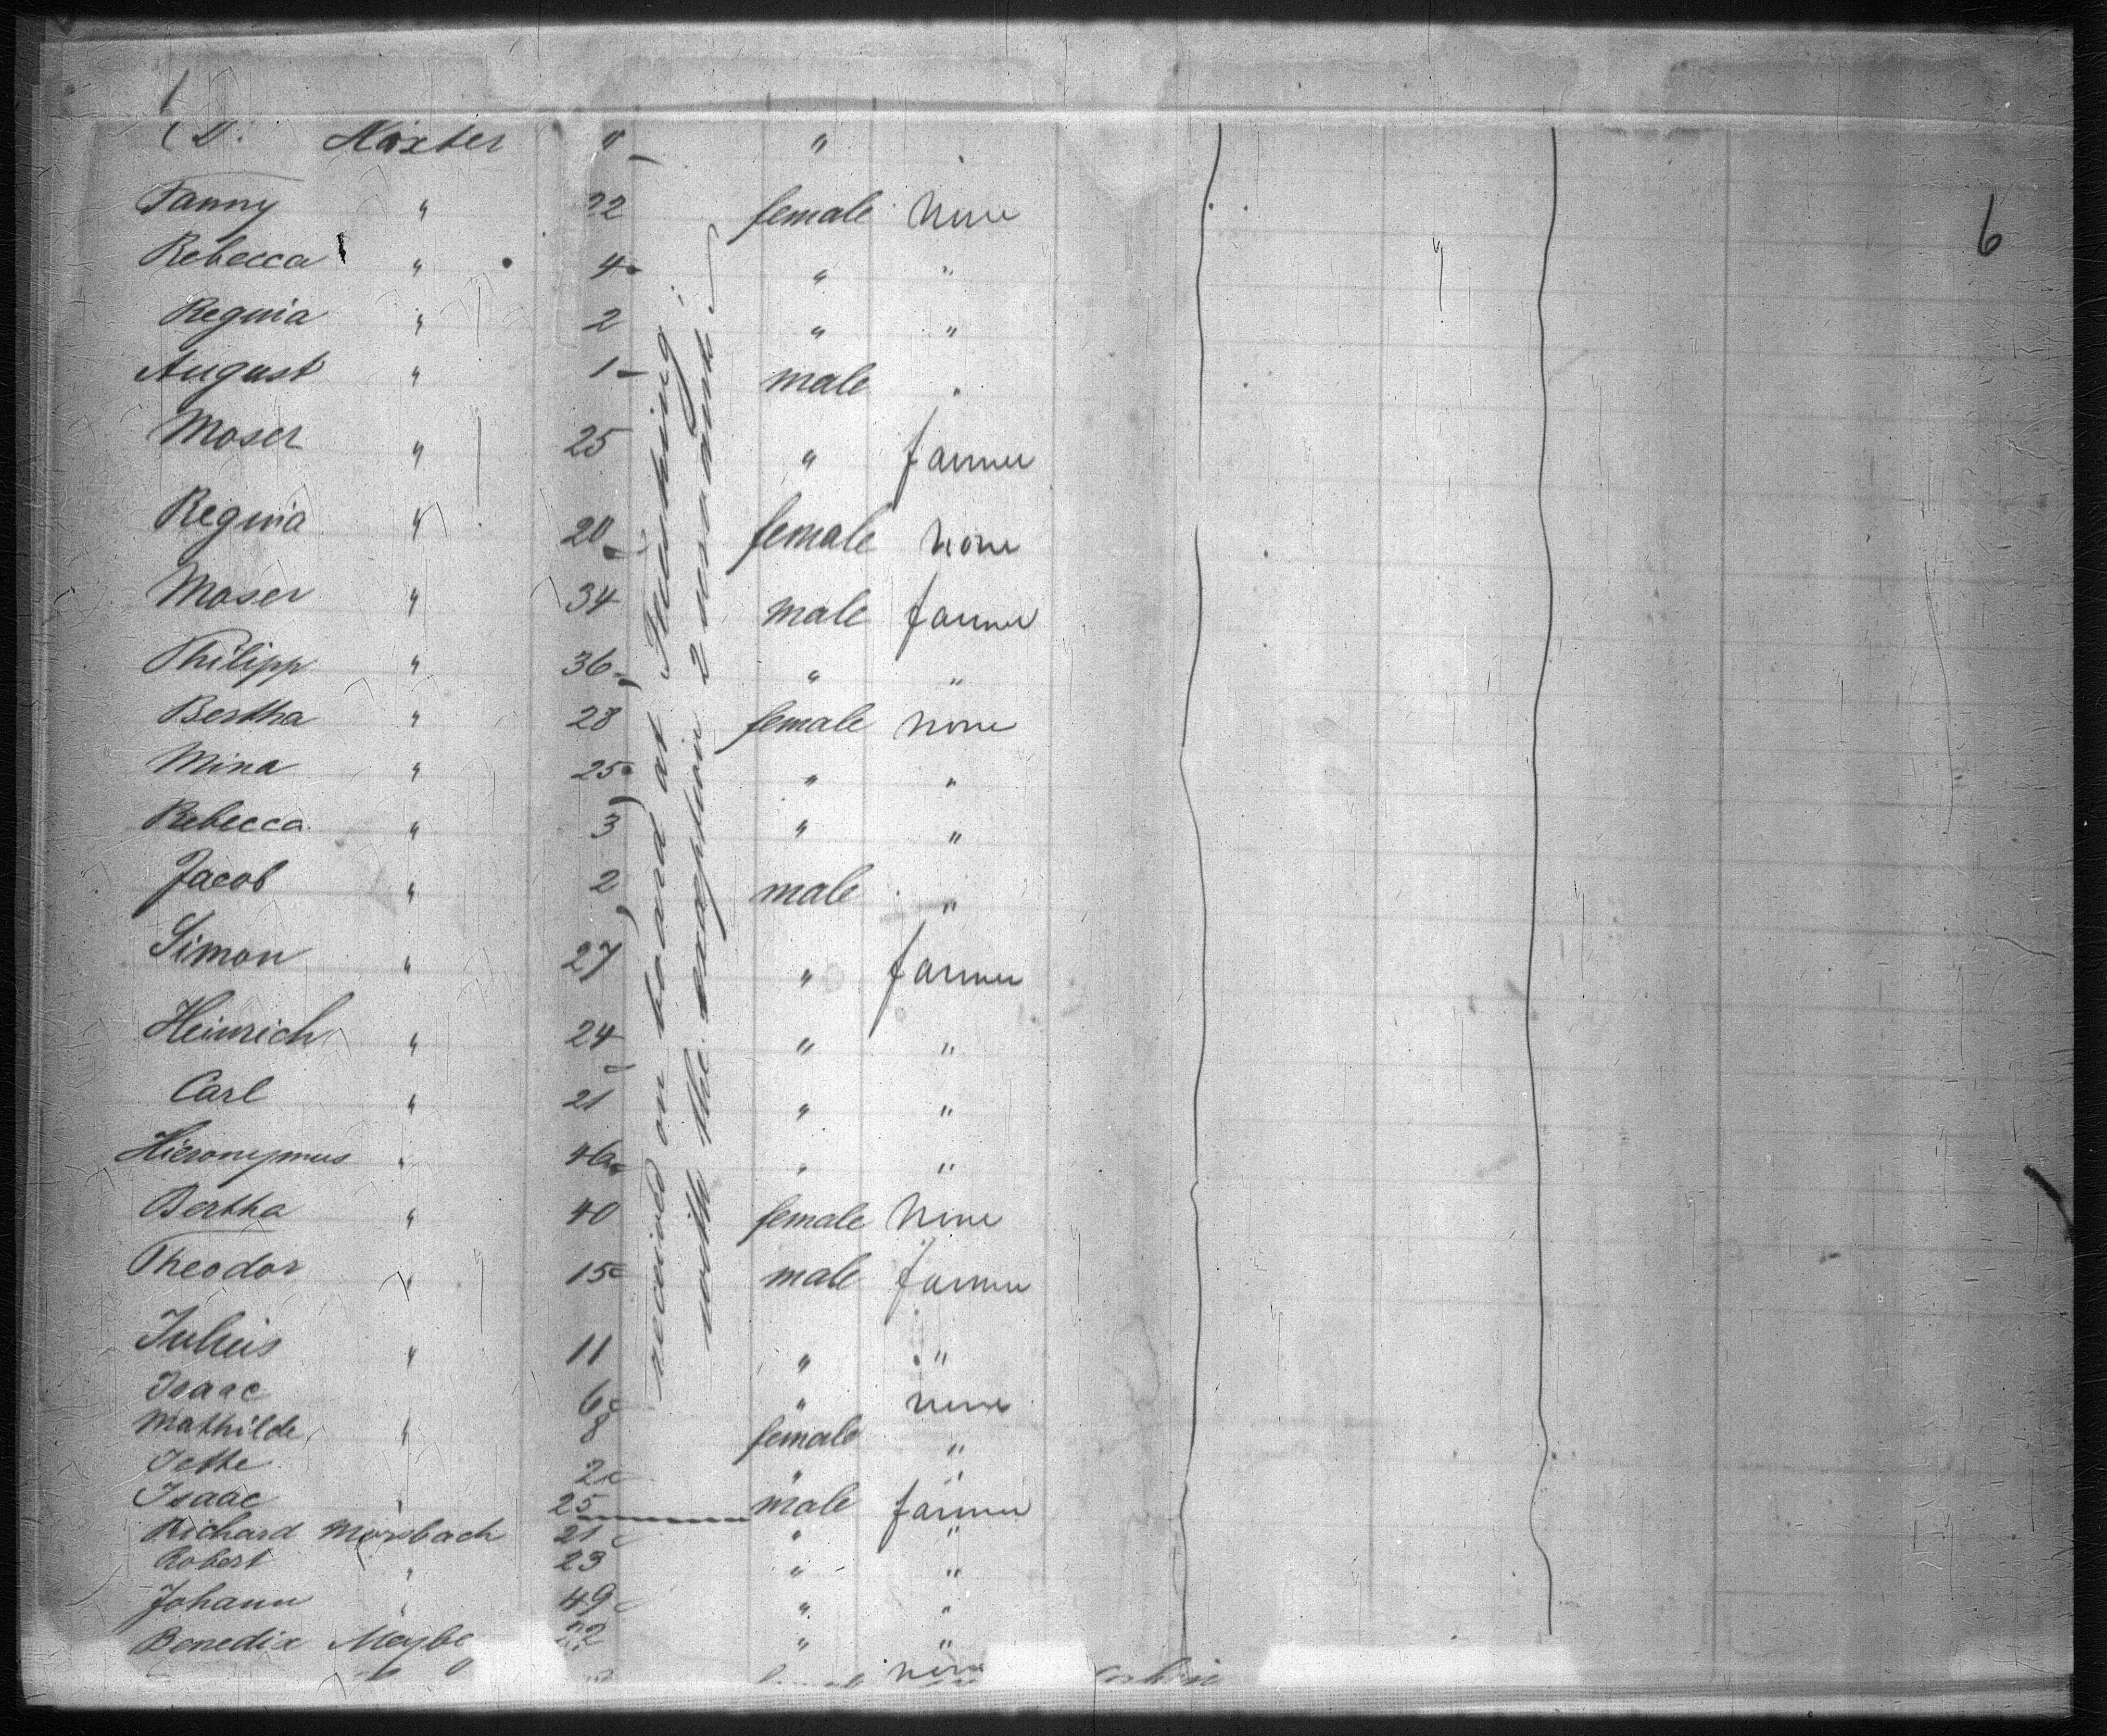 D. Höxter " "
Fanny " 22 female None
Rebecca " 4 " "
Regina " 2 " "
August " 1 male "
Moser " 25 " farmer
Regina " 20 female None
Moser " 34 male farmer
Philipp " 36 " "
Bertha " 28 female none
Mina " 25 " "
Rebecca " 3 " "
Jacob " 2 male "
Simon " 27 " farmer
Heinrich " 24 " "
Carl " 21 " "
Hieronymus " 46 " "
Bertha " 40 female None
Theodor " 15 male farmer
Julius " 11 " "
Isaac 6 " none
Mathilde " 8 female "
Jette 2 " "
Isaac " 25 male farmer
Richard Morsbach 21 " "
Robert " 23 " "
Johann " 49 " "
Benedix " "
none
received on board at
with the exception 2 servants
6